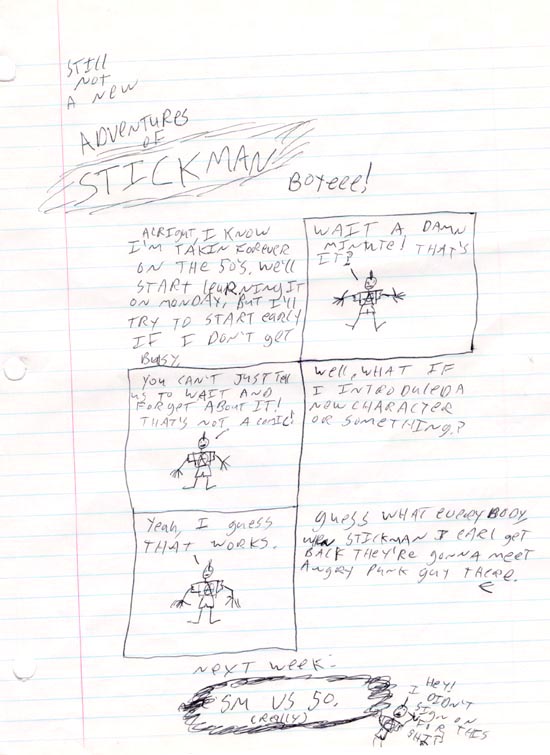 STILL
NOT
A NEW
ADVENTURES
OF
STICKMAN
BOYEEE!
ALRIGHT, I KNOW
I'M TAKIN FOREVER
ON THE 50'S. WE'LL
START LEARNING IT
ON MONDAY, BUT I'LL
TRY TO START EARLY
IF I DON'T GET
BUSY.
WAIT A DAMN
MINUTE! THAT'S
IT?
YOU CAN'T JUST TELL
US TO WAIT AND
FORGET ABOUT IT!
THAT'S NOT A COMIC!
WELL, WHAT IF
I INTRODUCED A
NEW CHARACTER
OR SOMETHING?
Yeah, I guess
THAT WORKS.
GUESS WHAT EVERYBODY,
WHEN STICKMAN & EARL GET
BACK THEY'RE GONNA MEET
ANGRY PUNK GUY THERE.
NEXT WEEK:
SM VS 50.
(REALLY)
HEY!
I DIDN'T
SIGN ON
FOR THIS
SHIT!